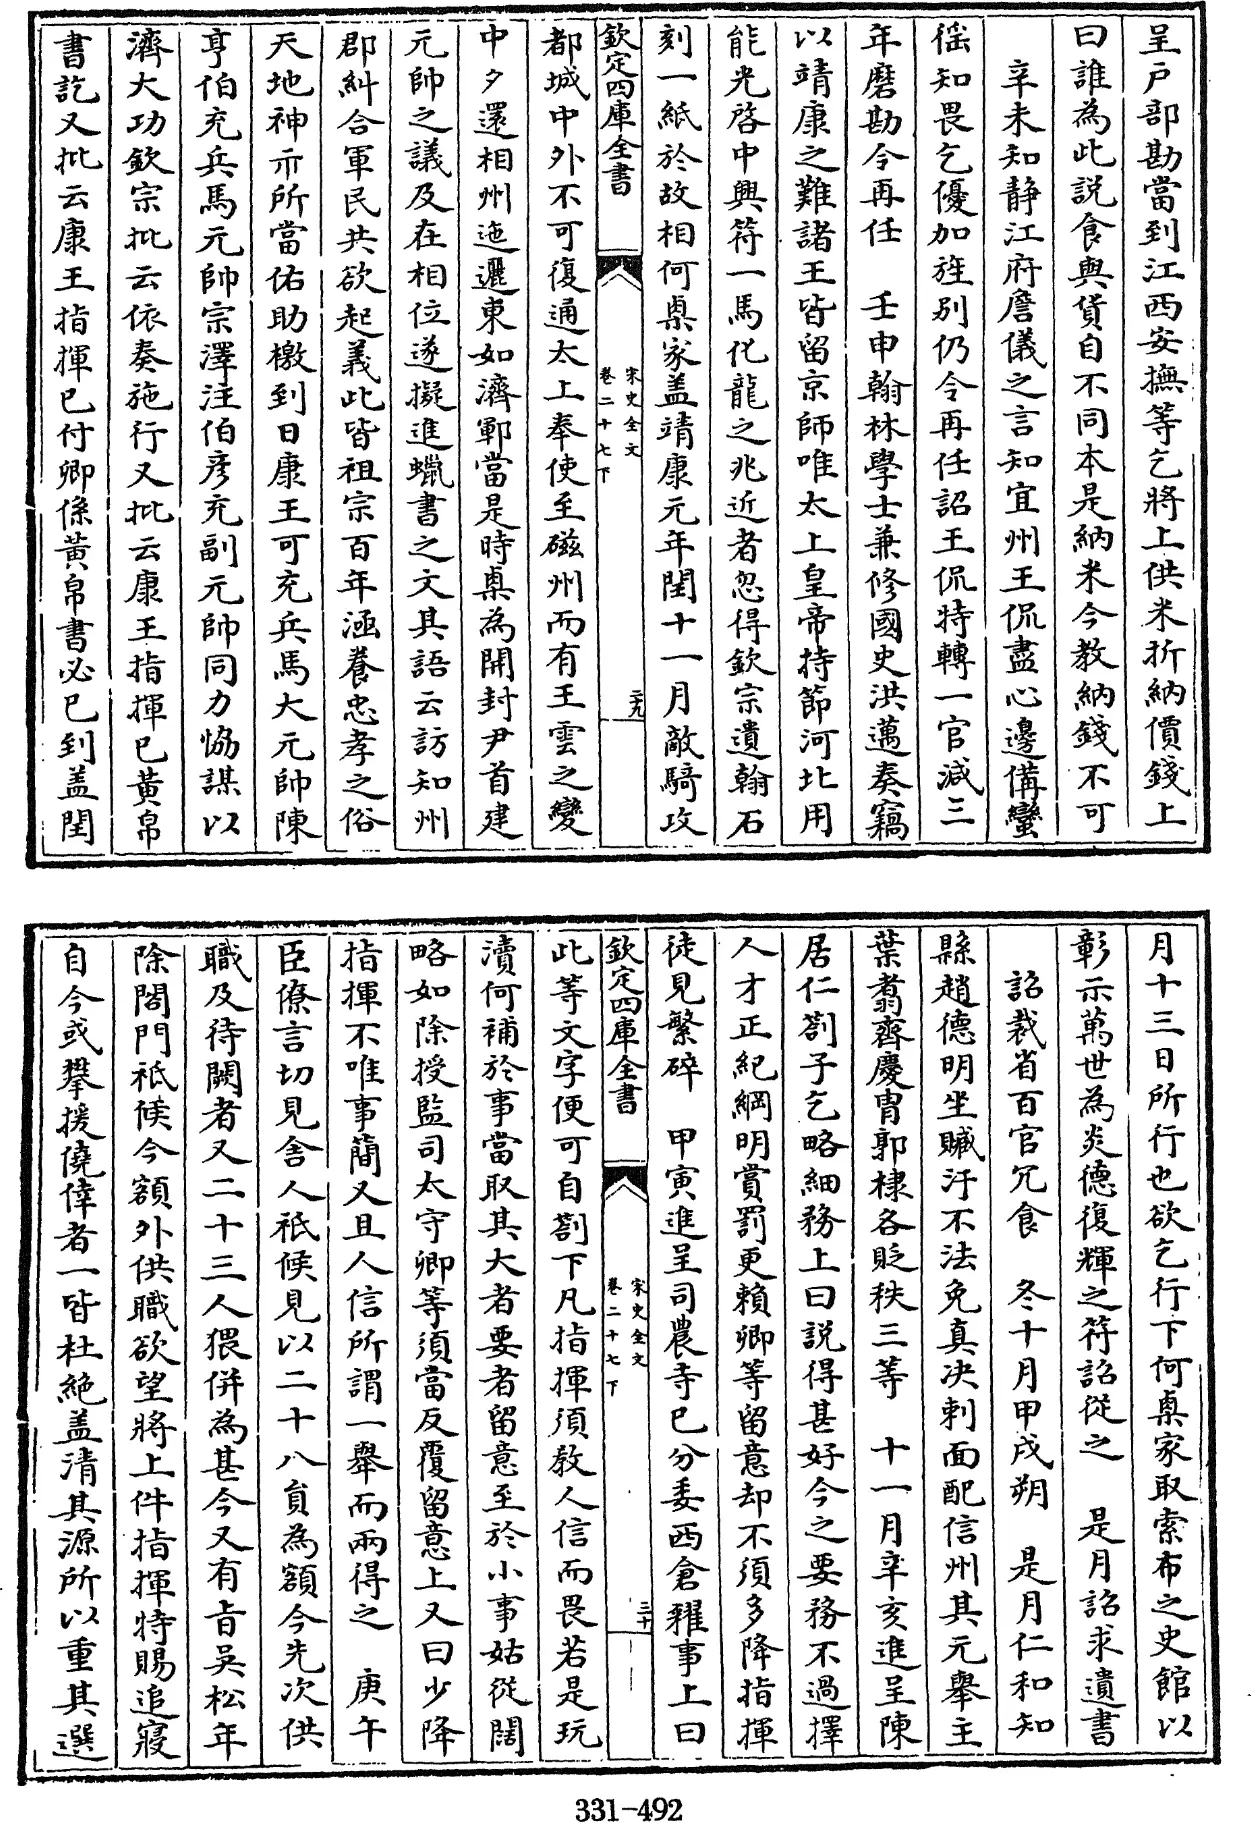 呈戸部勘當到江西安撫等乞將上供米折納價錢上
曰誰為此説食與貨自不同本是納米今教納錢不可
辛未知静江府詹儀之言知宜州王侃盡心邊備蠻
徭知畏乞優加旌别仍令再任詔王侃特轉一官減三
年磨勘今再任　壬申翰林學士兼修國史洪邁奏竊
以靖康之難諸王皆留京師唯太上皇帝持節河北用
能光啓中興符一馬化龍之兆近者忽得欽宗遺翰石
刻一紙於故相何㮚家盖靖康元年閏十一月敵騎攻
欽定四庫全書
宋史全文
卷二十七下
二九
都城中外不可復通太上奉使至磁州而有王雲之變
中夕還相州迤邐東如濟鄆當是時㮚為開封尹首建
元帥之議及在相位遂擬進蠟書之文其語云訪知州
郡糾合軍民共欲起義此皆祖宗百年涵養忠孝之俗
天地神示所當佑助檄到日康王可充兵馬大元帥陳
亨伯充兵馬元帥宗澤汪伯彦充副元帥同力恊謀以
濟大功欽宗批云依奏施行又批云康王指揮已黄帛
書訖又批云康王指揮已付卿係黄帛書必已到盖閏
月十三日所行也欲乞行下何㮚家取索布之史館以
彰示萬世為炎德復輝之符詔從之　是月詔求遺書
詔裁省百官冗食　冬十月甲戌朔　是月仁和知
縣趙德明坐贓汙不法免真决刺面配信州其元舉主
葉翥齊慶胄郭棣各貶秩三等　十一月辛亥進呈陳
居仁劄子乞略細務上曰説得甚好今之要務不過擇
人才正紀綱明賞罰更賴卿等留意却不須多降指揮
徒見繁碎　甲寅進呈司農寺已分委西倉糴事上曰
欽定四庫全書
宋史全文
卷二十七下
三十
此等文字便可自劄下凡指揮須教人信而畏若是玩
瀆何補於事當取其大者要者留意至於小事姑從闊
略如除授監司太守卿等須當反覆留意上又曰少降
指揮不唯事簡又且人信所謂一舉而兩得之　庚午
臣僚言切見舍人祗候見以二十八員為額今先次供
職及待闕者又二十三人猥併為甚今又有㫖吴松年
除閤門祗候今額外供職欲望將上件指揮特賜追寢
自今或攀援僥倖者一皆杜絶盖清其源所以重其選
331-492